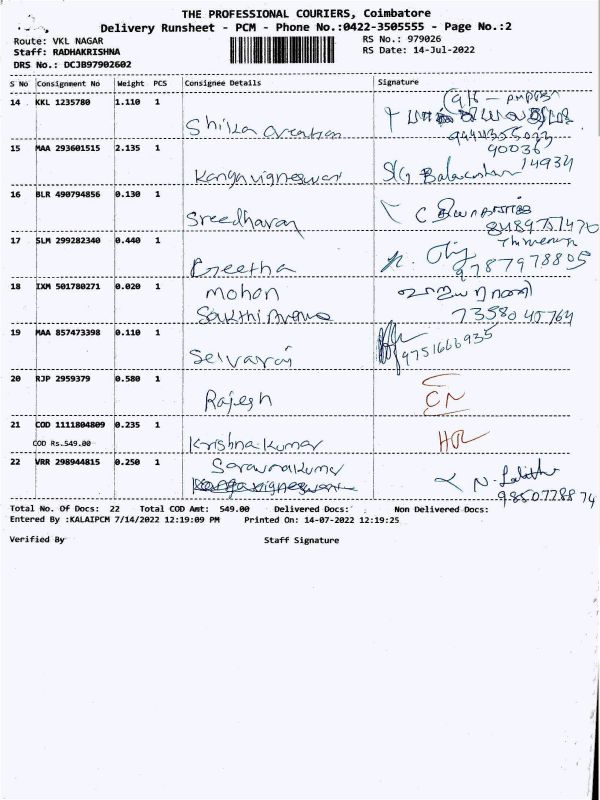 THE PROFESSIONAL COURIERS, Coimbatore
Delivery Runsheet - PCM - Phone No.:0422-3505555 - Page No.:2
Route: VKL NAGAR RS No.: 979026
Staff: RADHAKRISHNA RS Date: 14-Jul-2022
DRS No.: DCJB97902602
S No Consignment No Weight PCS Consignee Details Signature
14 KKL 1235780 1.110 1
Shilka creation
9444355023
15 MAA 293601515 2.135 1 90036
14934
Kangavigneswar S/G
16 BLR 490794856 0.130 1
Sreedharan C
8489751470
17 SLM 299282340 0.440 1
Preetha 9787978805
18 IXM 501780271 0.020 1 mohan
Sakthi Avenue 73580 40764
19 MAA 857473398 0.110 1
Selvaraj 9751666935
20 RJP 2959379 0.580 1
Rajesh CN
21 COD 1111804809 0.235 1
COD Rs.549.00 Krishna kumar
22 VRR 298944815 0.250 1 Saravnakumar
Kangavigneswar N. Lalitha
9850778874
Total No. Of Docs: 22 Total COD Amt: 549.00 Delivered Docs: : Non Delivered Docs:
Entered By :KALAIPCM 7/14/2022 12:19:09 PM Printed On: 14-07-2022 12:19:25
Verified By Staff Signature